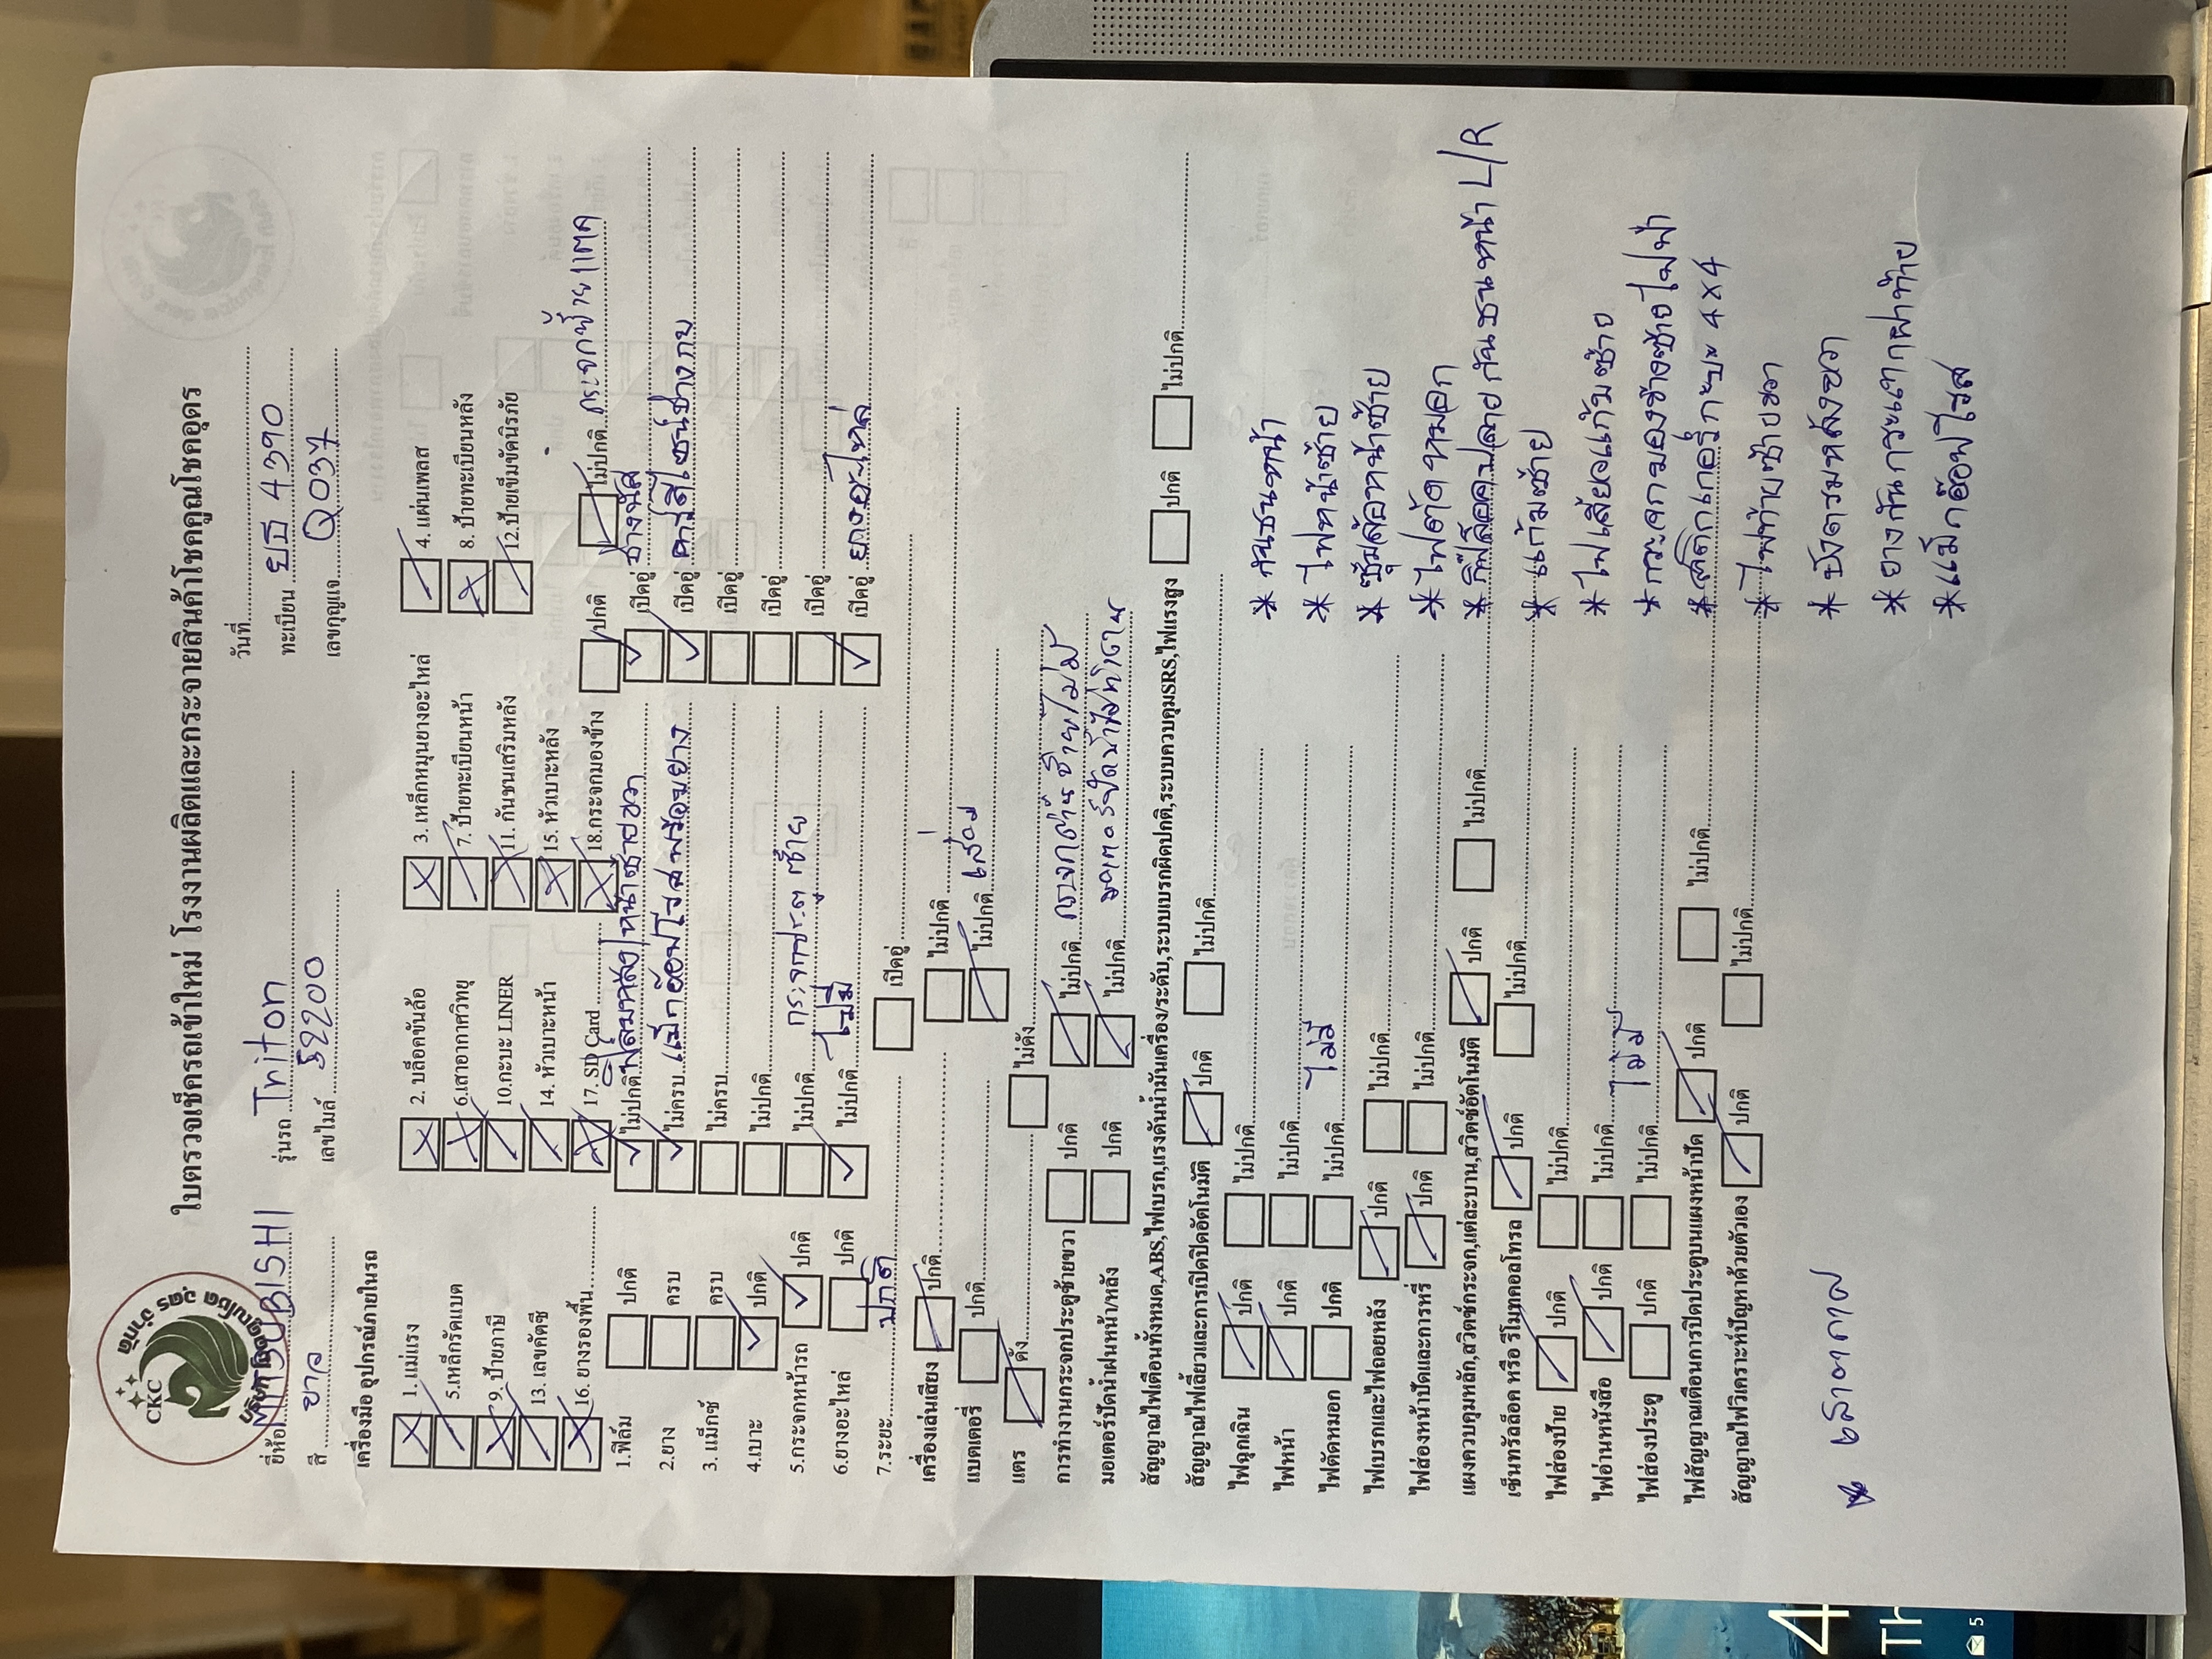 CKC
ใบตรวจเช็ครถเข้าใหม่ โรงงานผลิตและกระจายสินค้าโชคคูณโชคอุดร
วันที่
ยี่ห้อ MITSUBISHI รุ่นรถ Triton ทะเบียน ยธ 4390
สี ขาว เลขไมล์ เลขกุญแจ Q037
เครื่องมือ อุปกรณ์ภายในรถ
1. แม่แรง 2. บล็อคขันล้อ 3. เหล็กหมุนยางอะไหล่ 4. แผ่นเพลส
5.เหล็กรัดแบต 6.เสาอากาศวิทยุ 7. ป้ายทะเบียนหน้า 8. ป้ายทะเบียนหลัง
9. ป้ายภาษี 10.กะบะ LINER 11. กันชนเสริมหลัง 12.ป้ายเข็มขัดนิรภัย
13. เลขคัตซี 14. หัวเบาะหน้า 15. หัวเบาะหลัง
16. ยางรองพื้น 17. SD Card 18.กระจกมองข้าง ปกติ ไม่ปกติ กระจกซ้ายแตก
1.ฟิล์ม ปกติ ไม่ปกติ เปิดอู่
2.ยาง ครบ ไม่ครบ แม็กอ๊อฟโรสพร้อมยาง เปิดอู่
3. แม็กซ์ ครบ ไม่ครบ เปิดอู่
4.เบาะ ปกติ ไม่ปกติ เปิดอู่
5.กระจกหน้ารถ ปกติ ไม่ปกติ กระจกประตูซ้าย เปิดอู่
6.ยางอะไหล่ ปกติ ไม่ปกติ ไม่มี เปิดอู่ ยางอะไหล่
7.ระยะ ปกติ เปิดอู่
เครื่องเล่นเสียง ปกติ ไม่ปกติ
แบตเตอรี่ ปกติ ไม่ปกติ เสื่อม
แตร ดัง ไม่ดัง
การทำงานกระจกประตูซ้ายขวา ปกติ ไม่ปกติ
มอเตอร์ปัดน้ำฝนหน้า/หลัง ปกติ ไม่ปกติ
สัญญาณไฟเตือนทั้งหมด,ABS,ไฟเบรก,แรงดันน้ำมันเครื่อง/ระดับ,ระบบเบรกผิดปกติ,ระบบควบคุมSRS,ไฟแรงสูง ปกติ ไม่ปกติ
สัญญาณไฟเลี้ยวและการเปิดปิดอัตโนมัติ ปกติ ไม่ปกติ
ไฟฉุกเฉิน ปกติ ไม่ปกติ
ไฟหน้า ปกติ ไม่ปกติ
ไฟตัดหมอก ปกติ ไม่ปกติ ไม่มี
ไฟเบรกและไฟถอยหลัง ปกติ ไม่ปกติ
ไฟส่องหน้าปัดและการหรี่ ปกติ ไม่ปกติ
แผงควบคุมหลัก,สวิตช์กระจก,แต่ละบาน,สวิตช์อัตโนมัติ ปกติ ไม่ปกติ
เซ็นทรัลล็อค หรือ รีโมทคอลโทรล ปกติ ไม่ปกติ
ไฟส่องป้าย ปกติ ไม่ปกติ
ไฟอ่านหนังสือ ปกติ ไม่ปกติ
ไฟส่องประตู ปกติ ไม่ปกติ ไม่มี
ไฟสัญญาณเตือนการปิดประตูบนแผงหน้าปัด ปกติ ไม่ปกติ
สัญญาณไฟวิเคราะห์ปัญหาด้วยตัวเอง ปกติ ไม่ปกติ
* กันชนหน้า
* ไฟหน้าซ้าย
* ซุ้มล้อหน้าซ้าย
* ไฟตัดหมอก
* กันชนหน้า L/R
* แก้มซ้าย
* ไฟเลี้ยวแก้มซ้าย
* กระจกมองข้างซ้ายไฟฟ้า
* สติกเกอร์กะบะ 4x4
* ไฟท้ายซ้ายขวา
* บังตรมหลังขวา
* ยางกันกระแทกฝาท้าย
* แม็กอ๊อฟโรส
* เสาอากาศ